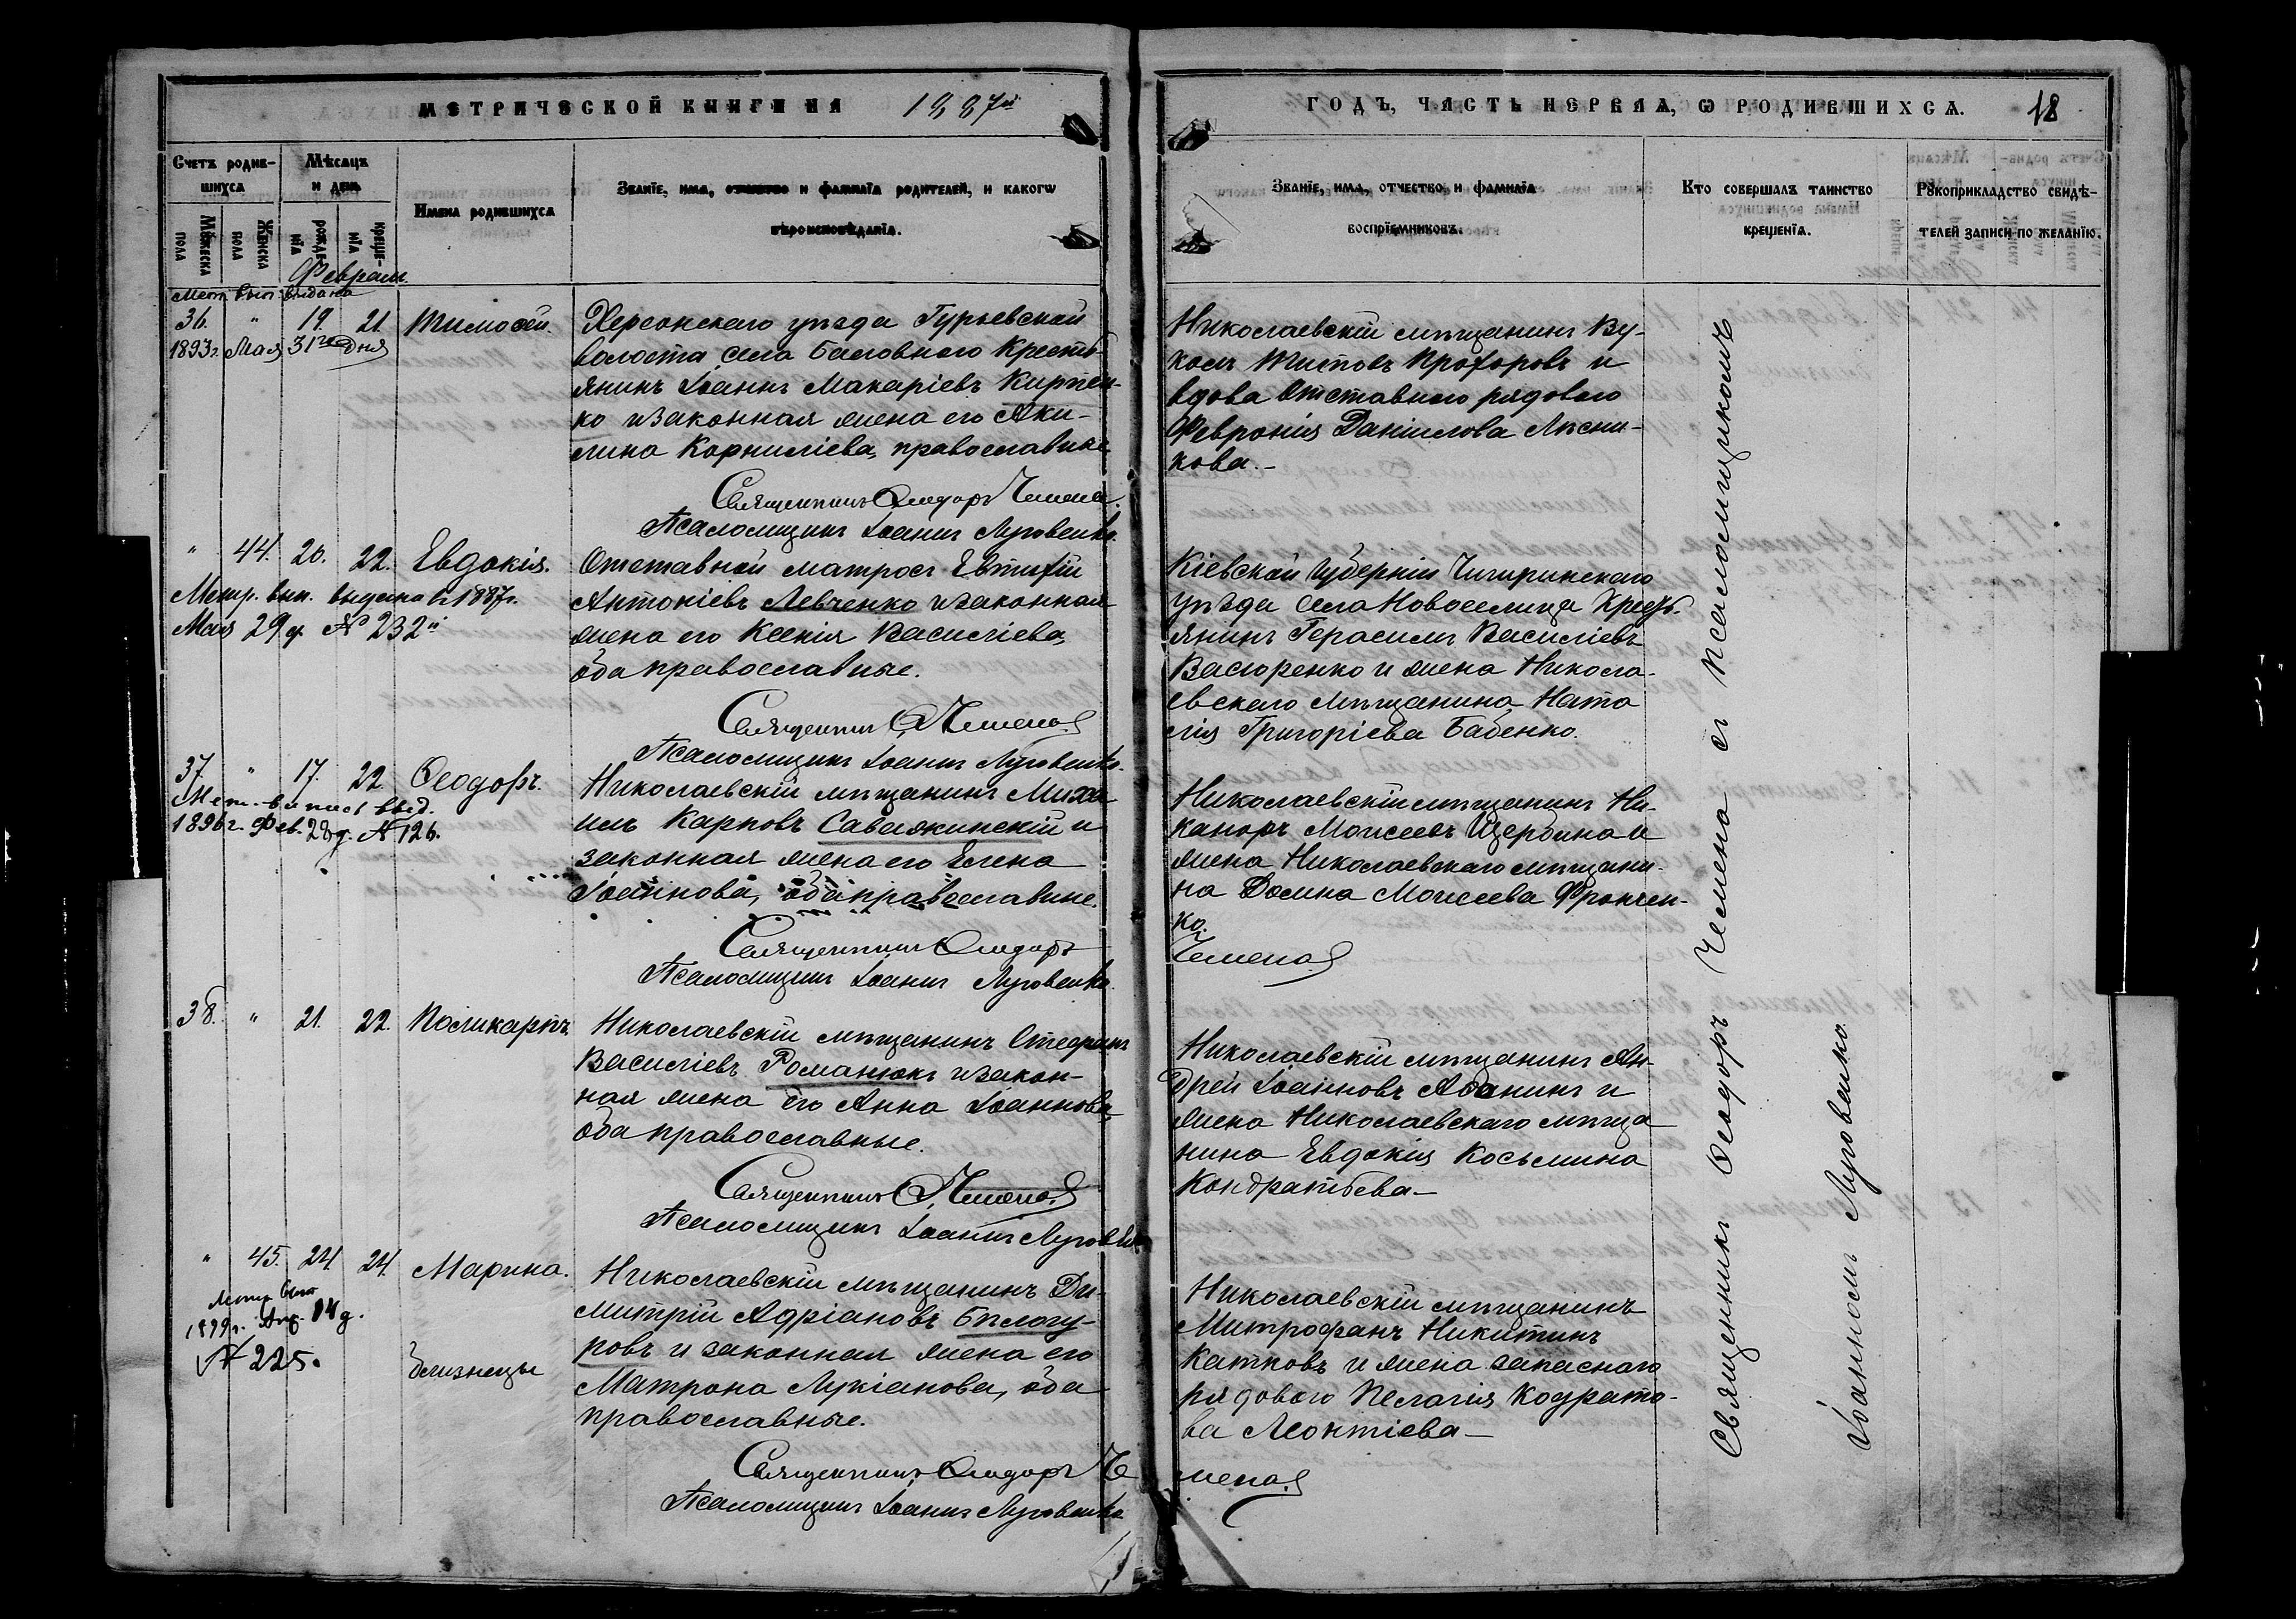 МЕТРИЧЕСКОЙ КНИГИ НА 1887й
ГОДЪ, ЧАСТЬ ПЕРВАЯ, Ѡ РОДИВШИХСѦ. 18
Счетъ родив-
шихсѧ
Мѣсяцъ
и день
Мꙋжеска
пола
Женска
пола
рожде-
нїѧ
креще-
нїѧ
Имена родившихсѧ
Званїе, имѧ, отчество и фамилїѧ родителей, и какогѡ
вѣроисповѣданїѧ.
Званїе, имѧ, отчество, и фамилїѧ
воспрїемниковъ.
Кто совершалъ таинство
крещенїѧ.
Рꙋкоприкладство свидѣ-
телей записи по желанїю.
Февраль.
Мет. вып. выдана
36. " 19. 21. Тимоѳей.
1893г. Мая 31го дня
Херсонскаго уѣзда Гурьевской
волости села Баловнаго Кресть-
янинъ Іоаннъ Макаріевъ Кирпен-
ко и законная жена его Аки-
лина Корниліева, православные
Священникъ Ѳеодоръ Чемена
Псаломщикъ Іоаннъ Луговенко.
Николаевскій мѣщанинъ Ву-
колъ Титовъ Прохоровъ и
вдова отставнаго рядового
Февронія Даніилова Лясни-
кова.-
" 44. 20. 22. Евдокія.
Метр. вып. выдана въ 1887г.
Мая 29 д. № 232й
Отставной матросъ Евтихій
Антоніевъ Левченко и законная
жена его Ксенія Василіева,
оба православные.
Священникъ Ѳ. Чемена
Псаломщикъ Іоаннъ Луговенко.
Кіевской Губерніи Чигиринскаго
уѣзда села Новоселица Крест-
янинъ Герасимъ Василіевъ
Васюренко и жена Никола-
евскаго мѣщанина Ната
лія Григоріева Бабенко.
37. " 17. 22. Ѳеодоръ.
Мет. выпись выд.
1896г. Фев. 28 д. № 126.
Николаевскій мѣщанинъ Миха
илъ Карповъ Савлжинскій и
законная жена его Елена
Іоаннова, оба православные.
Священникъ Ѳеодоръ
Псаломщикъ Іоаннъ Луговенко
Николаевскій мѣщанинъ Ни-
каноръ Моисеевъ Щербина и
жена Николаевскаго мѣщани-
на Домна Моисеева Фрончен-
ко.
Чемена
38. " 21. 22. Поликарпъ.
Николаевскій мѣщанинъ Стефанъ
Василіевъ Романюкъ и закон-
ная жена его Анна Іоаннова,
оба православные.
Священникъ Ѳ. Чемена
Псаломщикъ Іоаннъ Луговенко
Николаевскій мѣщанинъ Ан-
дрей Іоанновъ Абанинъ и
жена Николаевскаго мѣща
нина Евдокія Косьмина
Кондратьева-
" 45. 24. 24. Марина.
Метр. вып.
1899г. Апр. 14 д.
№ 225.
близнецы
Николаевскій мѣщанинъ Ди-
митрій Адріановъ Бѣлогу-
ровъ и законная жена его
Матрона Лукіанова, оба
православные.
Священникъ Ѳеодоръ Че
Псаломщикъ Іоаннъ Луговенко
Николаевскій мѣщанинъ
Митрофанъ Никитинъ
Катковъ и жена запаснаго
рядового Пелагія Кодрато-
ва Леонтіева-
мена
Священникъ Ѳеодоръ Чемена съ Псаломщикомъ
Іоанномъ Луговенко.